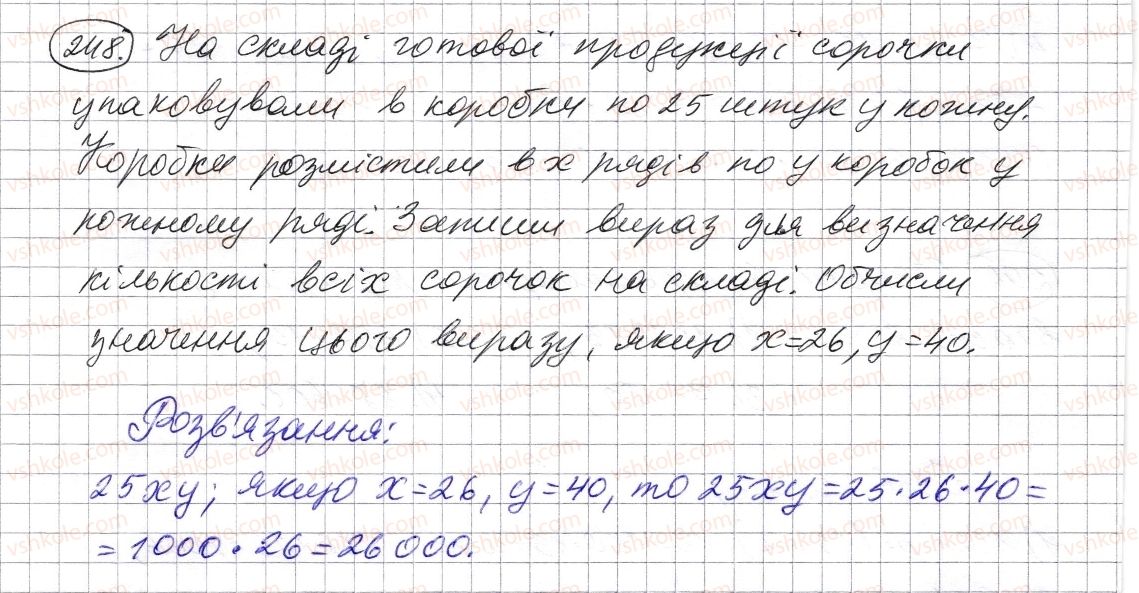 248. На складі готової продукції сорочки
упаковували в коробки по 25 штук у кожну.
Коробки розмістили в x рядів по y коробок у
кожному ряді. Запиши вираз для визначення
кількості всіх сорочок на складі. Обчисли
значення цього виразу, якщо x=26, y=40.
Розв'язання:
25xy; якщо x=26, y=40, то 25xy=25·26·40=
=1000·26=26000.